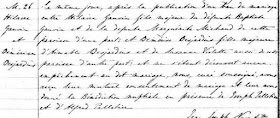 M. 26
Hilaire
Gauvin
et
Desjardins
Le même jour, après la publication d'un ban de mariage
entre Hilaire Gauvin fils majeur de défunt Baptiste
Gauvin et de défunte Marguerite Michaud de cette
paroisse d'une part; et Desjardins fille majeure
d'Amable Desjardins et de Vaillé aussi de cette
paroisse d'autre part; et ne s'étant découvert aucun
empêchement au dit mariage, nous curé soussigné, avons
reçu leur mutuel consentement de mariage et leur avons
donné la Bénédiction nuptiale en présence de Joseph Pelletier
et d'Alfred Pelletier.